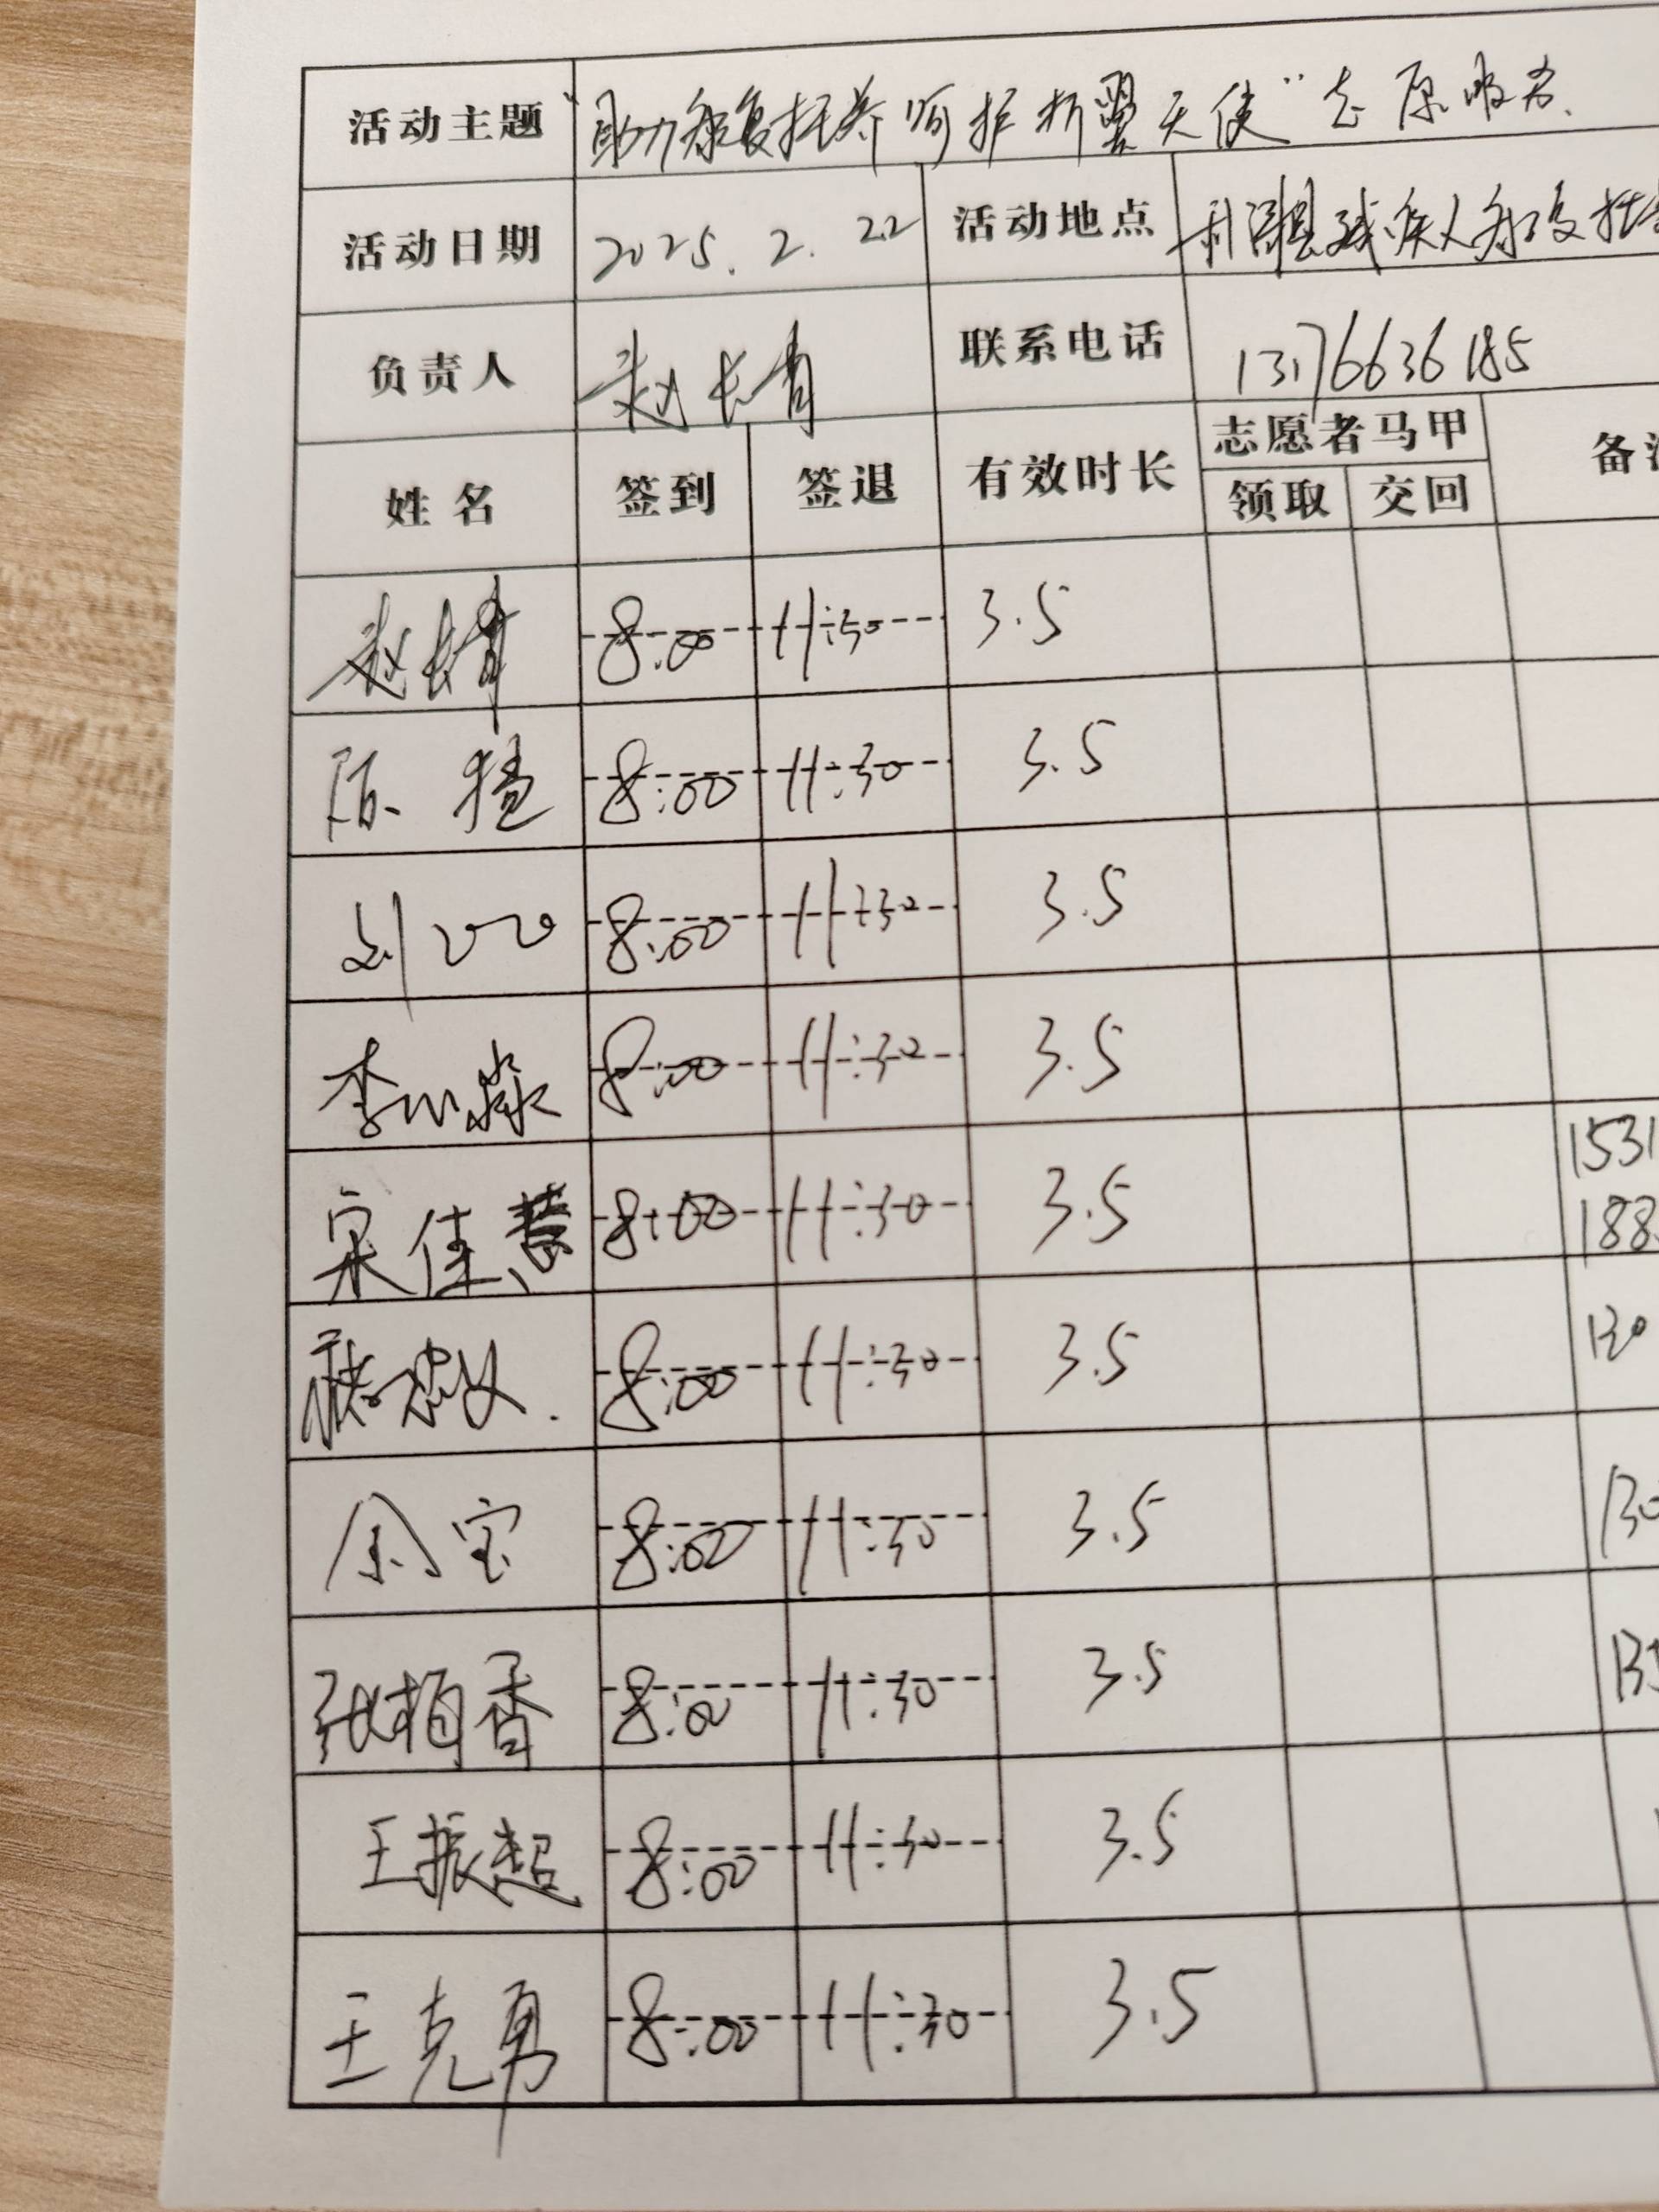 活动主题 "助力康复托养 呵护折翼天使"志愿服务.
活动日期 2025.2.22 活动地点 利津县残疾人康复托养
负责人 赵长青 联系电话 13176636185
姓名 签到 签退 有效时长 志愿者马甲 备注
领取 交回
赵长青 8:00 11:30 3.5
陈 8:00 11:30 3.5
刘 8:00 11:30 3.5
李 8:00 11:30 3.5
宋佳慧 8:00 11:30 3.5 1531
188
8:00 11:30 3.5 130
宝 8:00 11:30 3.5 130
张柏香 8:00 11:30 3.5 135
王振超 8:00 11:30 3.5
王克勇 8:00 11:30 3.5